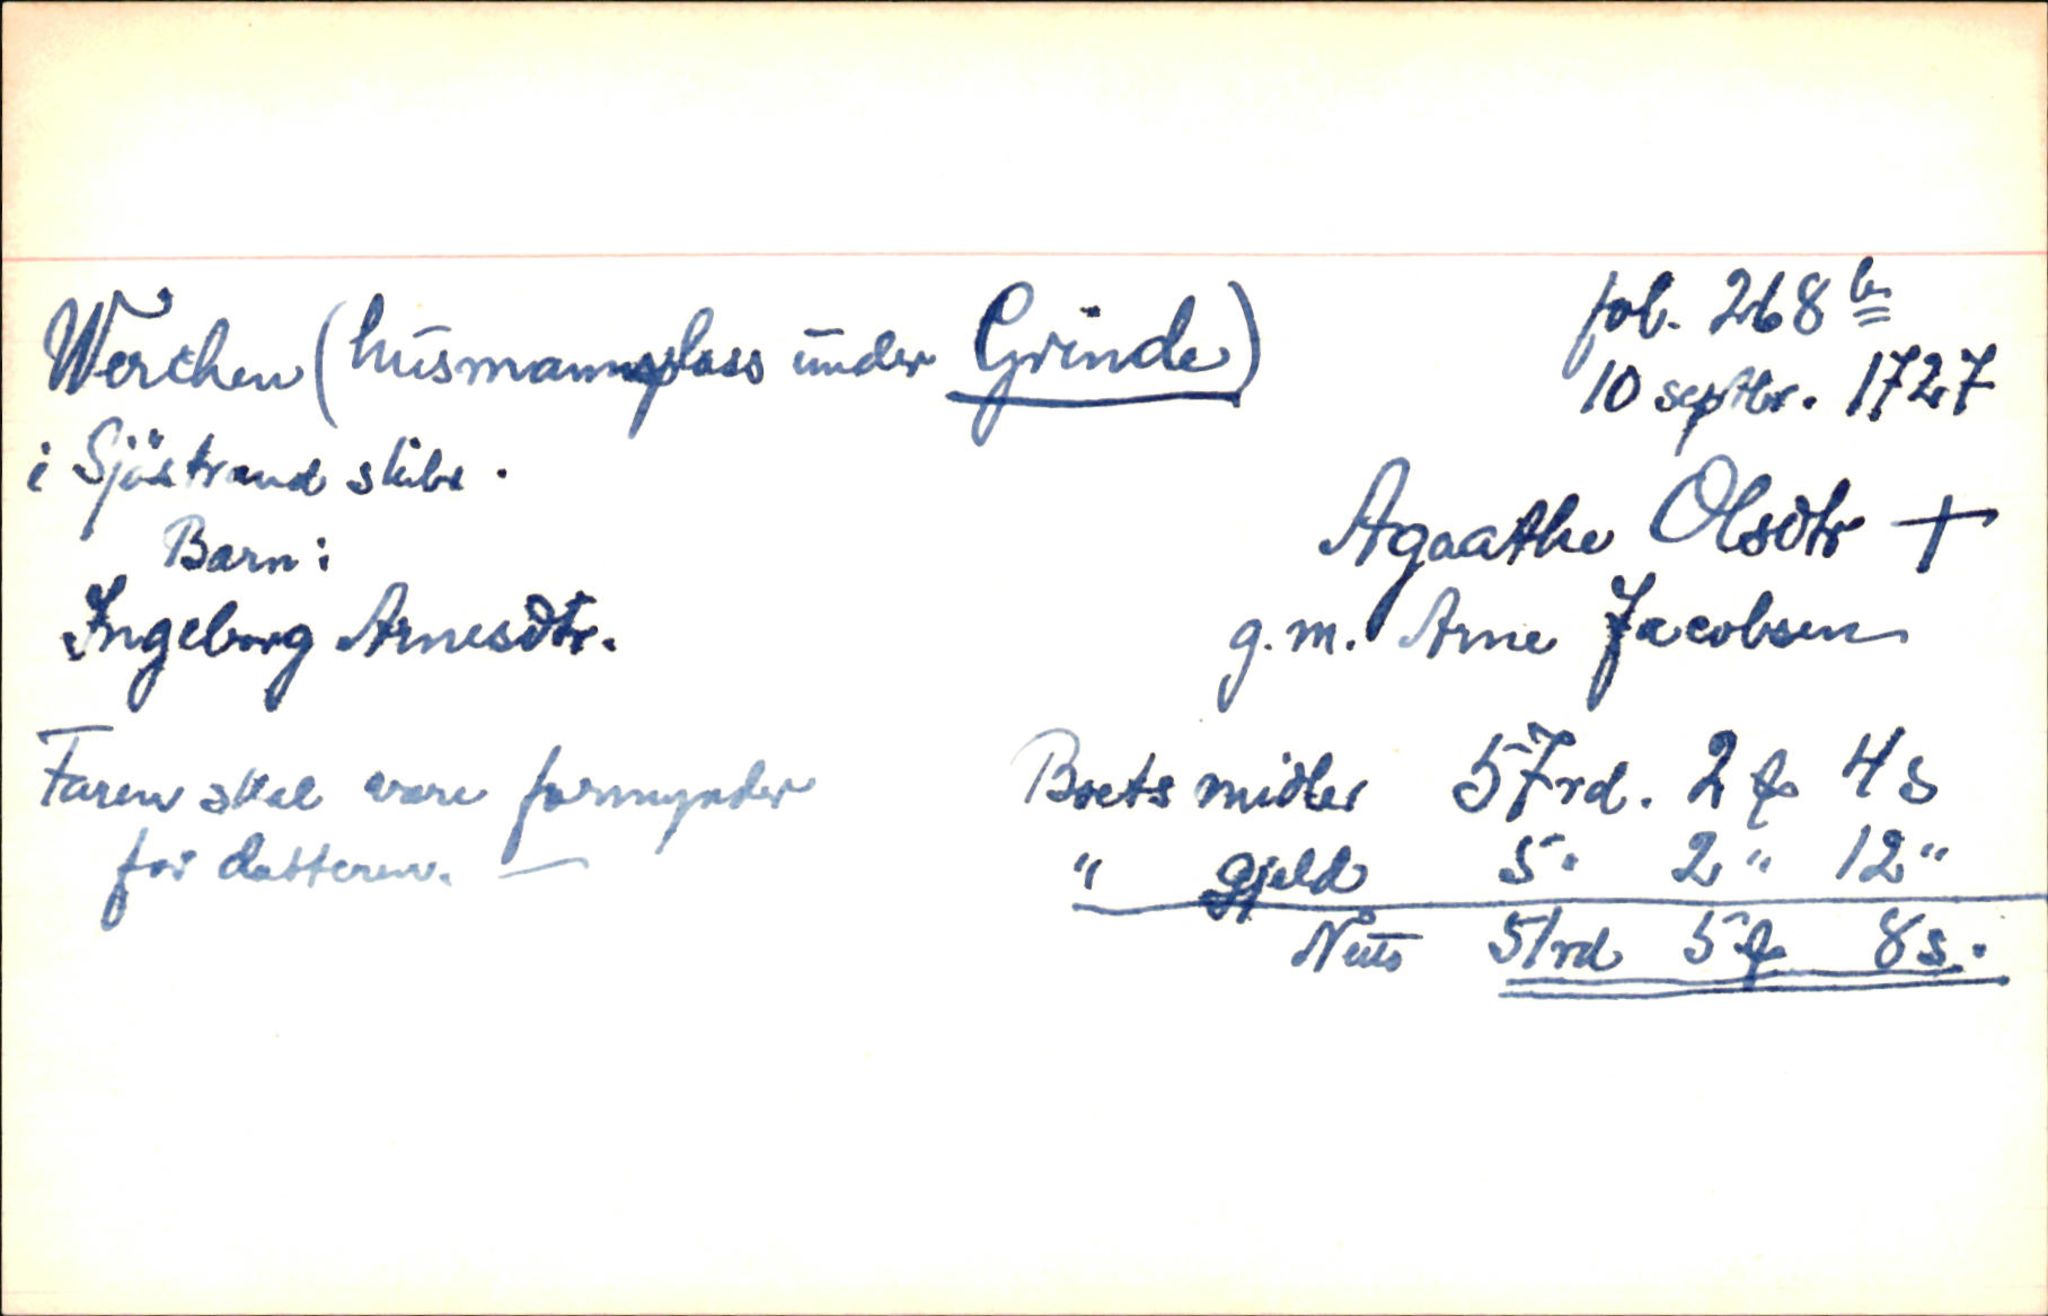 Werchen (husmannsplass under Grinde) fol. 268 b
10 septbr. 1727
i Sjöstrand skibr.
Agaathe Olsdtr +
Barn:
g. m. Arne Jacobsen
Ingeborg Arnesdtr.
Faren skal være formynder
for datteren. —
Boets midler 57 rd. 2 f 4 s
" gjeld 5 " 2 " 12 "
Netto 51 rd 5 f 8 s.